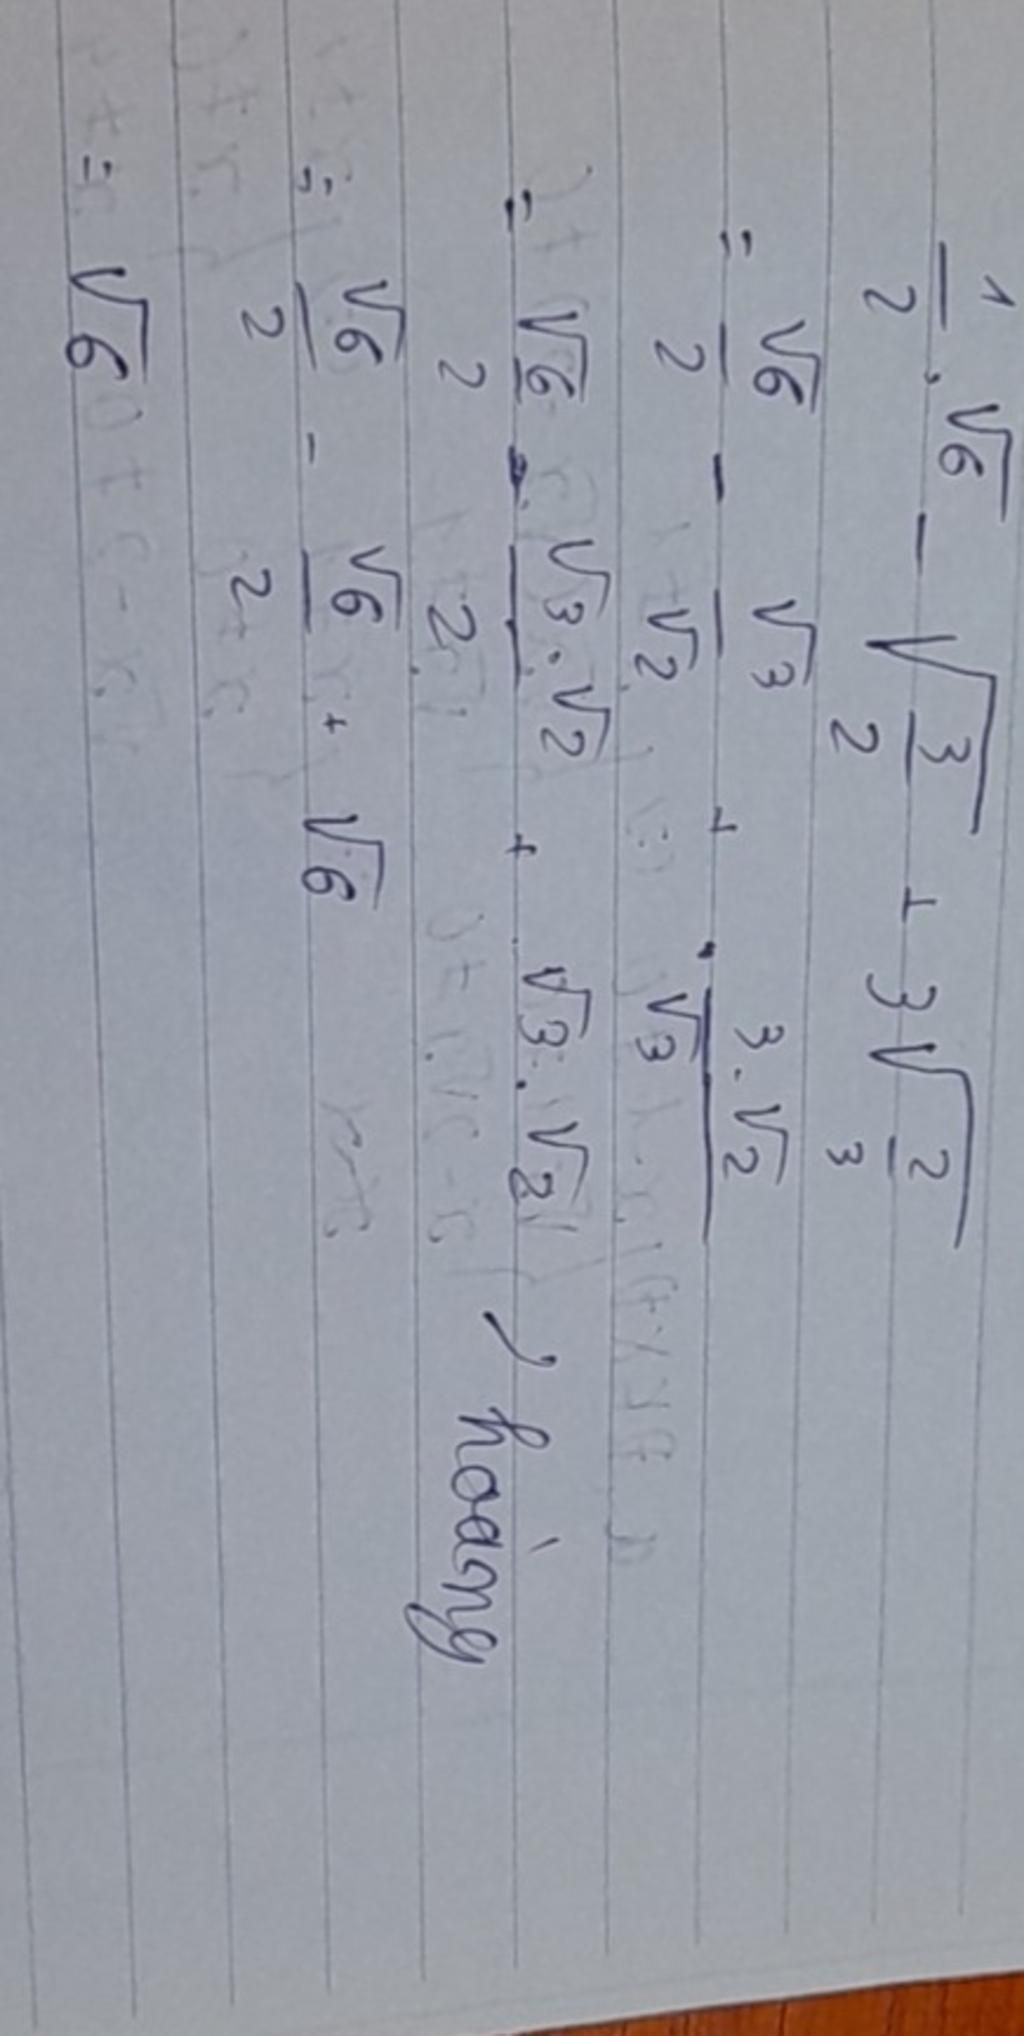 1/2 . √6 - √(3/2) + 3√(2/3)
= √6/2 - √3/√2 + 3.√2/√3
= √6/2 - √3.√2/2 + √3.√2 hoàng
= √6/2 - √6/2 + √6
= √6